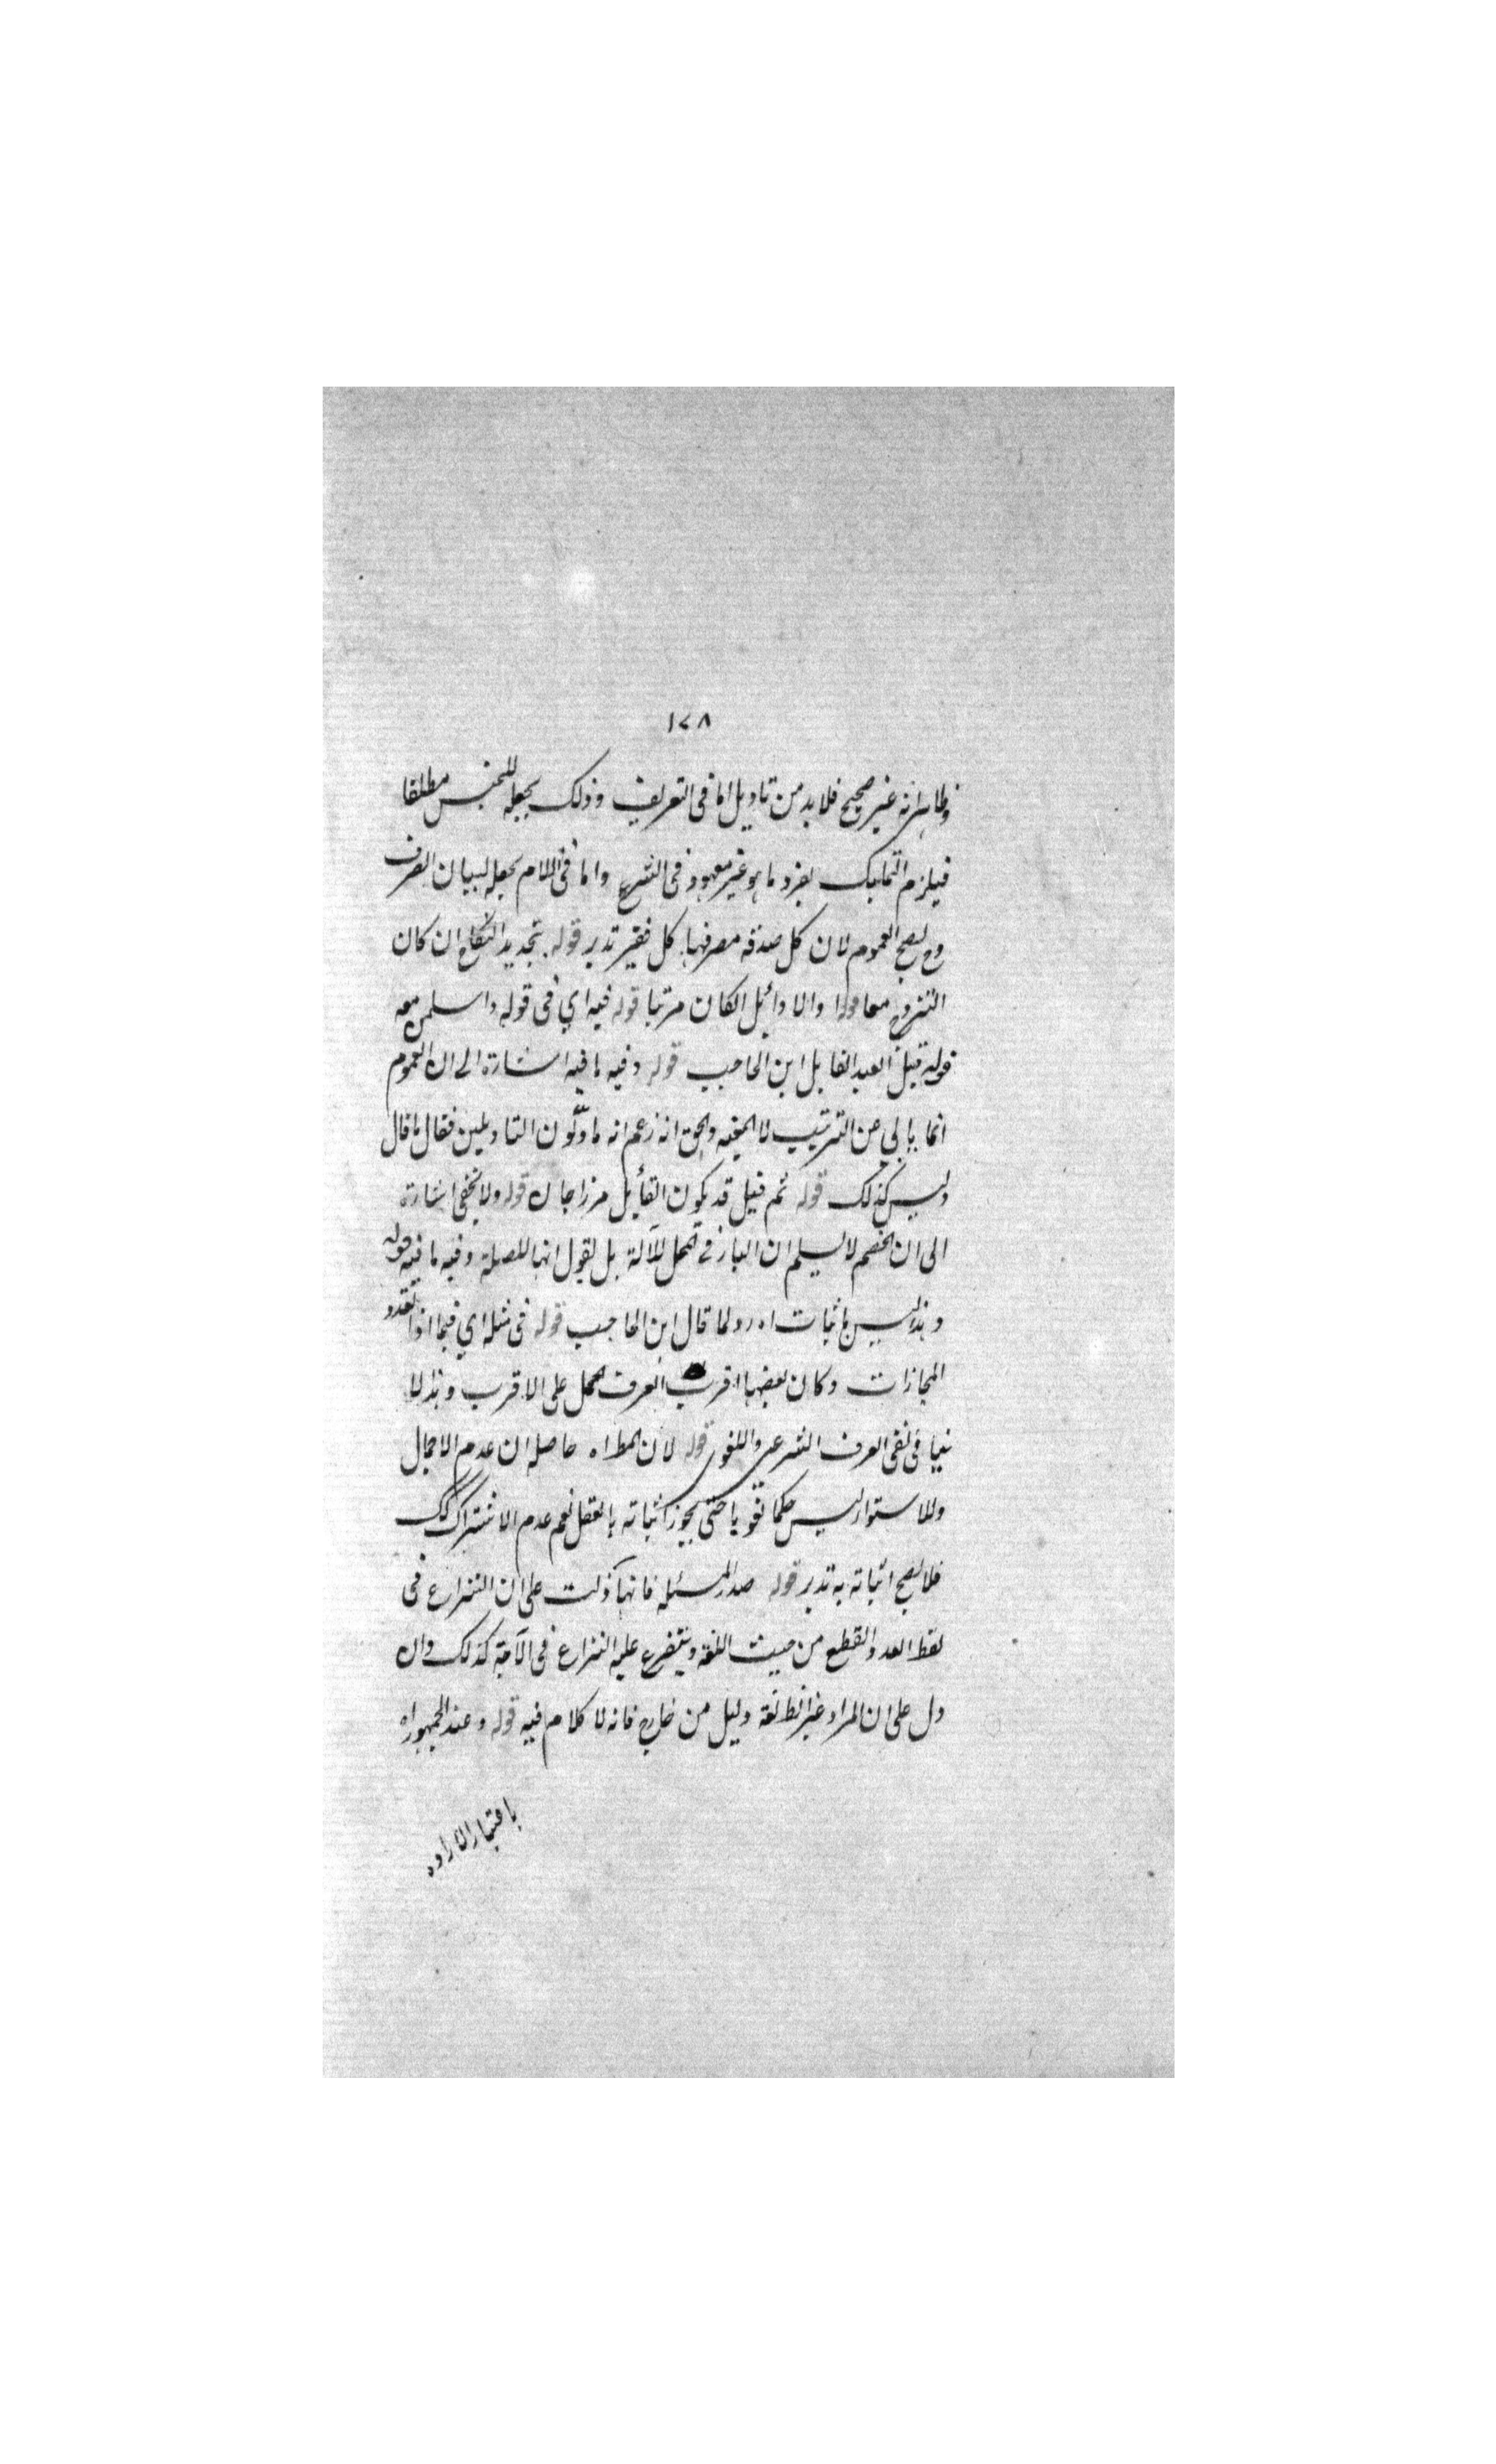 ١٧٨
وظاهر انه غير صحيح فلا بد من تاويل اما فى التعريف وذلك بجعله للجنس مطلقا
فيلزم التمليك بفرد ما هو غير معهود فى الشرع واما فى اللام بجعله لبيان المصرف
وح يصح العموم لان كل صدقة مصرفها كل فقير تدبر قوله بتجديد النكاح ان كان
التزوج معا والاوائل ان كان مرتبا قوله فيه اي فى قوله واسلمن معه
قوله قيل العبد القايل ابن الحاجب قوله وفيه ما فيه اشارة الى ان العموم
انما يابى عن الترتيب لا المعية والحق انه زعم انه ماوّلون التاويلين فقال ما قال
وليس كذلك قوله ثم قيل قد يكون القائل مرزا جان قوله ولا يخفى اشارة
الى ان الخصم لا يسلم ان الباء فى المحل للآلة بل يقول انها للصلة وفيه ما فيه قوله
وهذا ليس باثبات اه رد لما قال ابن الحاجب قوله فى مثله اي فيما اذا تعدد
المجازات وكان بعضها اقرب العرف يحمل على الاقرب وهذا لا
ينافى نفى العرف الشرعى واللغوى قوله لان المط اه حاصله ان عدم الاجمال
والاستواء ليس حكما لغويا حتى يجوز اثباته بالعقل نعم عدم الاشتراك كك
فلا يصح اثباته به تدبر قوله صدر المسئلة فانها دلت على ان النزاع فى
لفظ اليد والقطع من حيث اللغة ويتفرع عليه النزاع فى الآية كذلك وان
دل على ان المراد غير انظائفة دليل من خارج فانه لا كلام فيه قوله وعند الجمهور اه
باعتبار الارادة